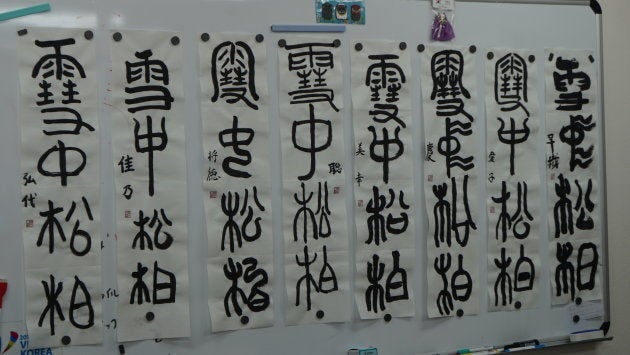 雪中松柏
雪中松柏
雪中松柏
慶
雪中松柏
美幸
雪中松柏
聡
雪中松柏
将徳
雪中松柏
佳乃
雪中松柏
弘代
KOREA